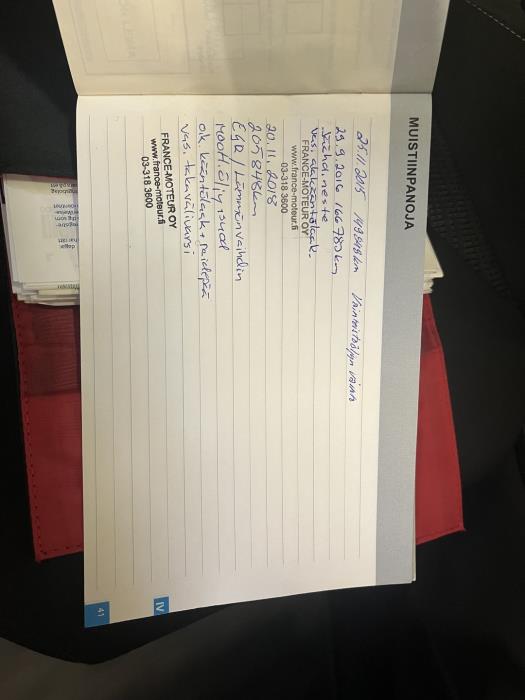 MUISTIINPANOJA
25.11.2015 149848km Vaihteistoöljyn vaihto
29.9.2016 166780km
Vaihd. neste
Vas. alatukivarsi
FRANCE-MOTEUR OY
www.france-moteur.fi
03-318 3600
20.11.2018
205848km
EGR / Lämmönvaihdin
moott. öljy + suod
o.k. kääntölaak + raidepää
vas. takavälivarsi
FRANCE-MOTEUR OY
www.france-moteur.fi
03-318 3600
IV
41